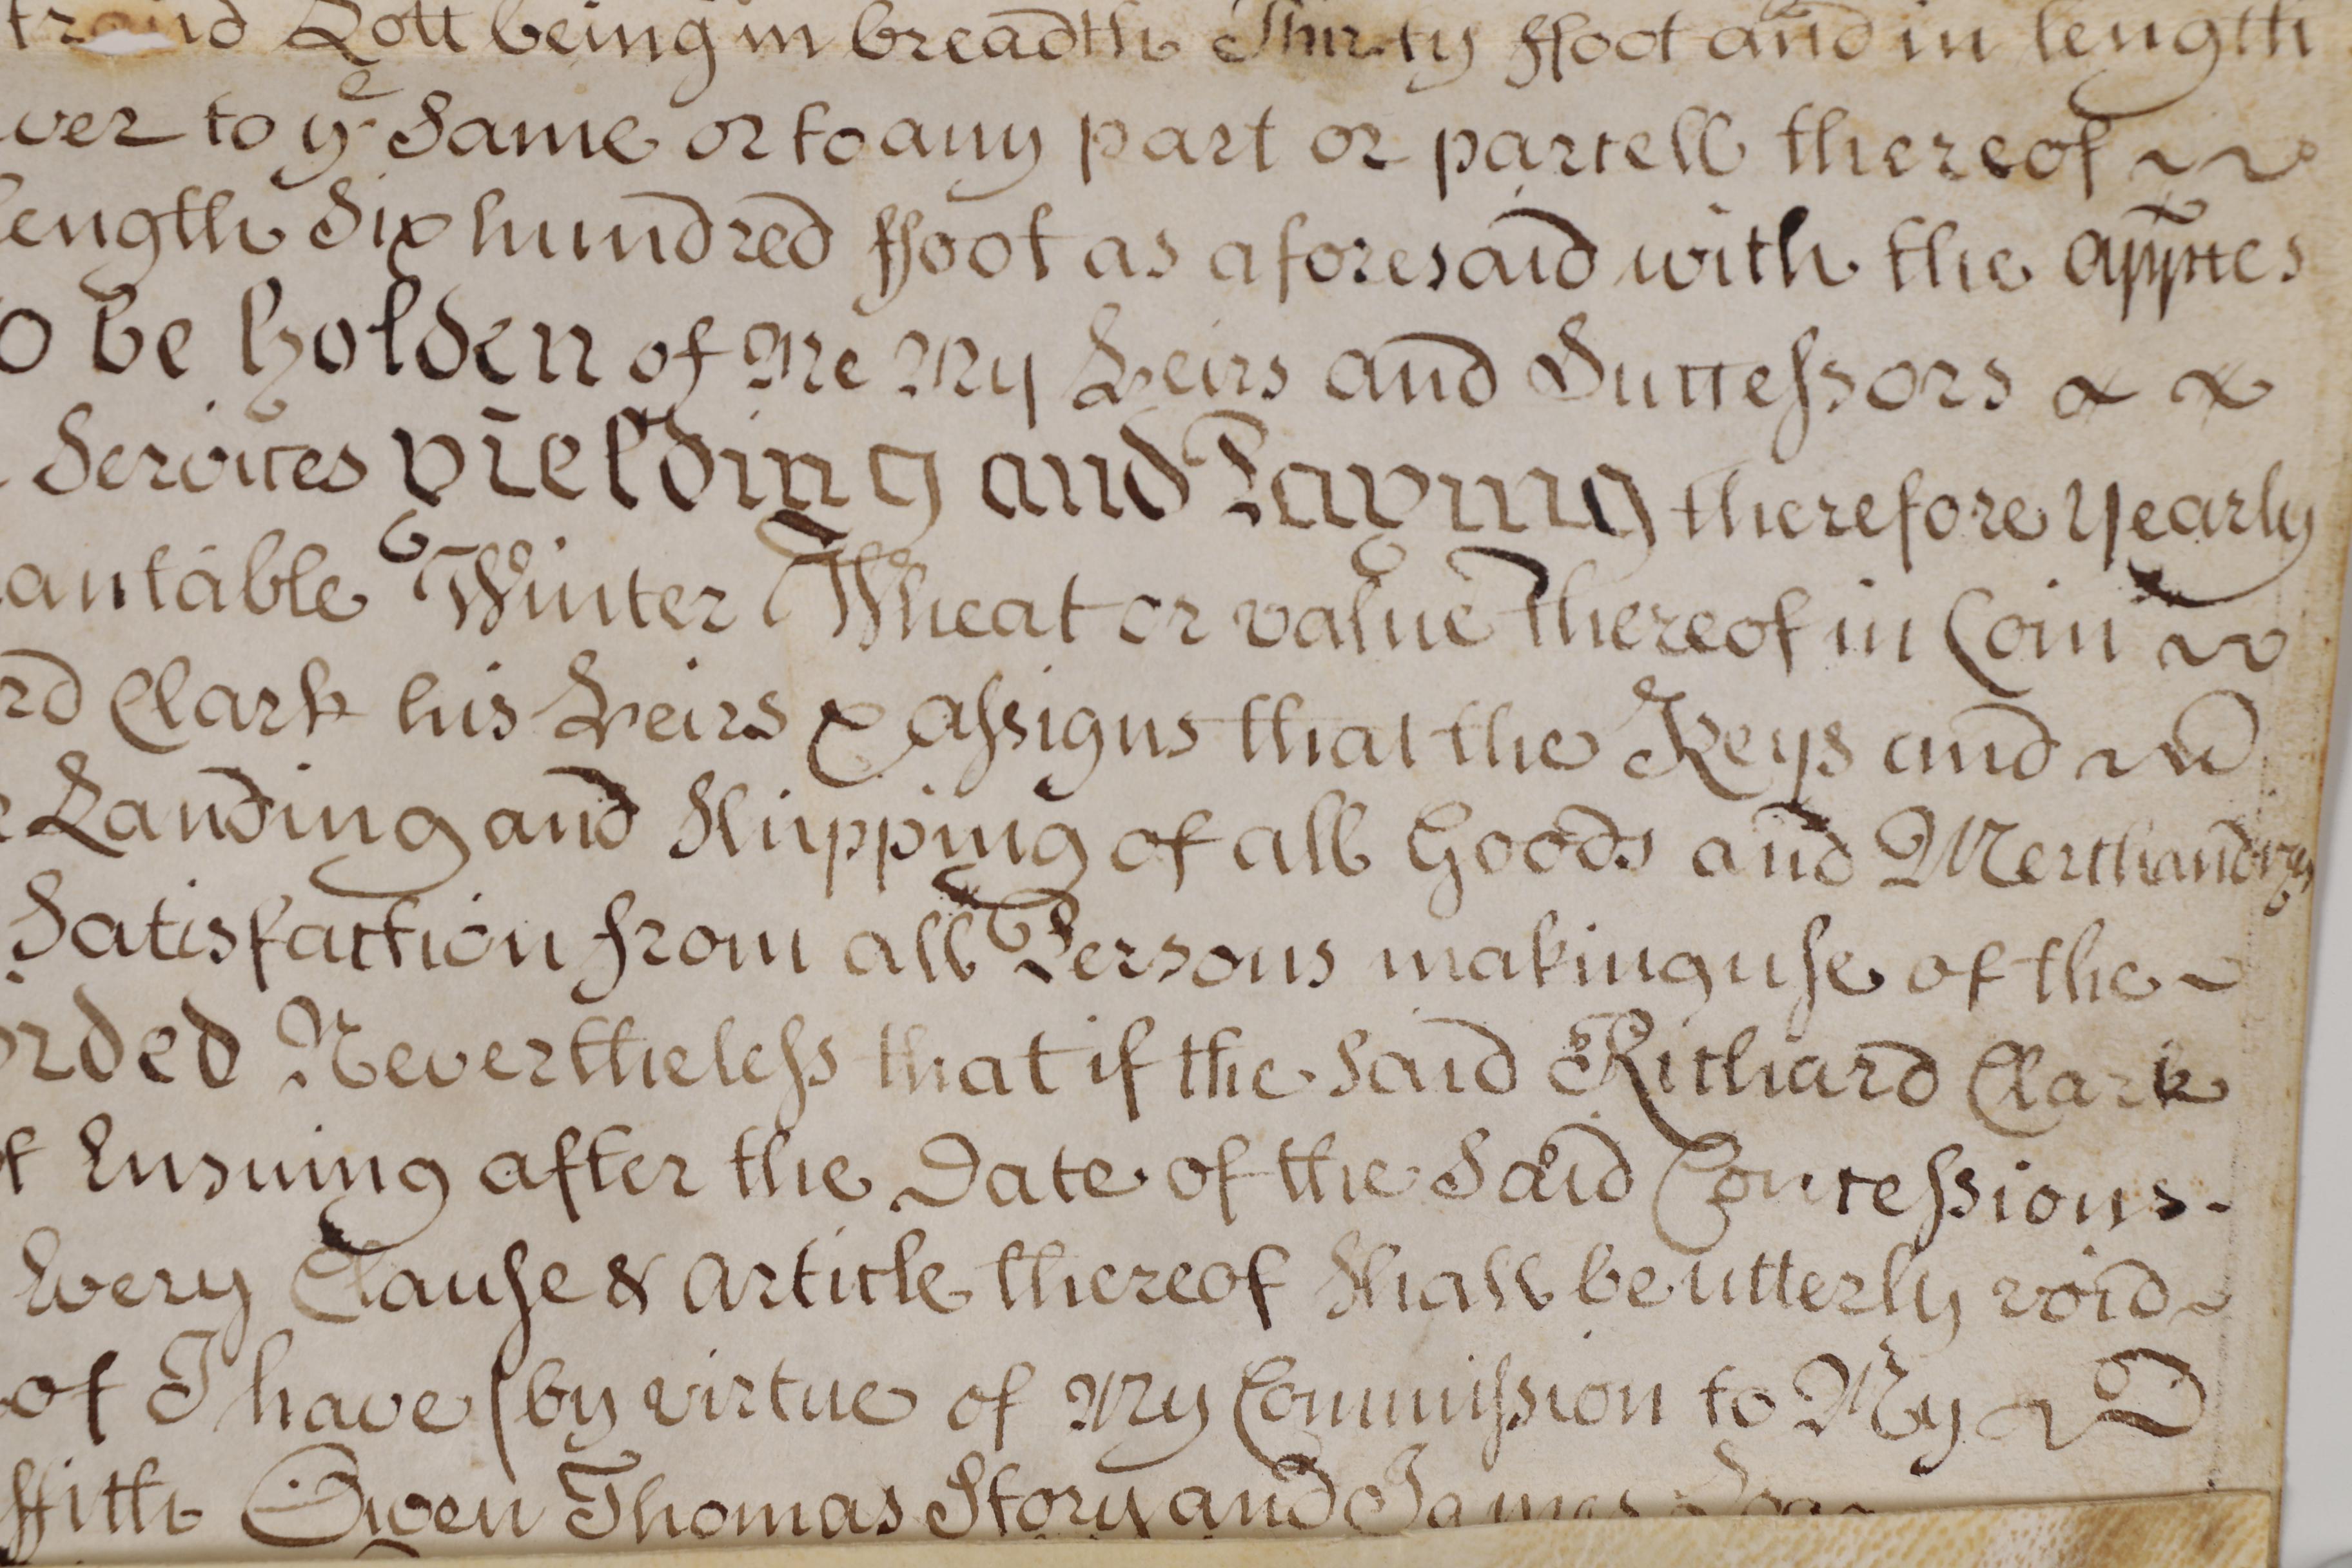 Lott being in breadth Thirty ffoot and in length
ver to yͤ Same or to any part or parcell thereof
length Six hundred ffoot as aforesaid with the apprtes
o be holden of Me My Heirs and Successors
Services Yielding and Paying therefore Yearly
antable Winter Wheat or value Thereof in Coin
rd Clark his Heirs & assigns that the Keys and
Landing and Shipping of all Goods and Merchandizes
Satisfaction from all Persons making use of the
orded Nevertheless that if the Said Richard Clark
t Ensuing after the Date of the Said Concessions.
Every Clause & Article thereof Shall be utterly void
of I have (by virtue of My Commission to My
ffith Owen Thomas Story and James